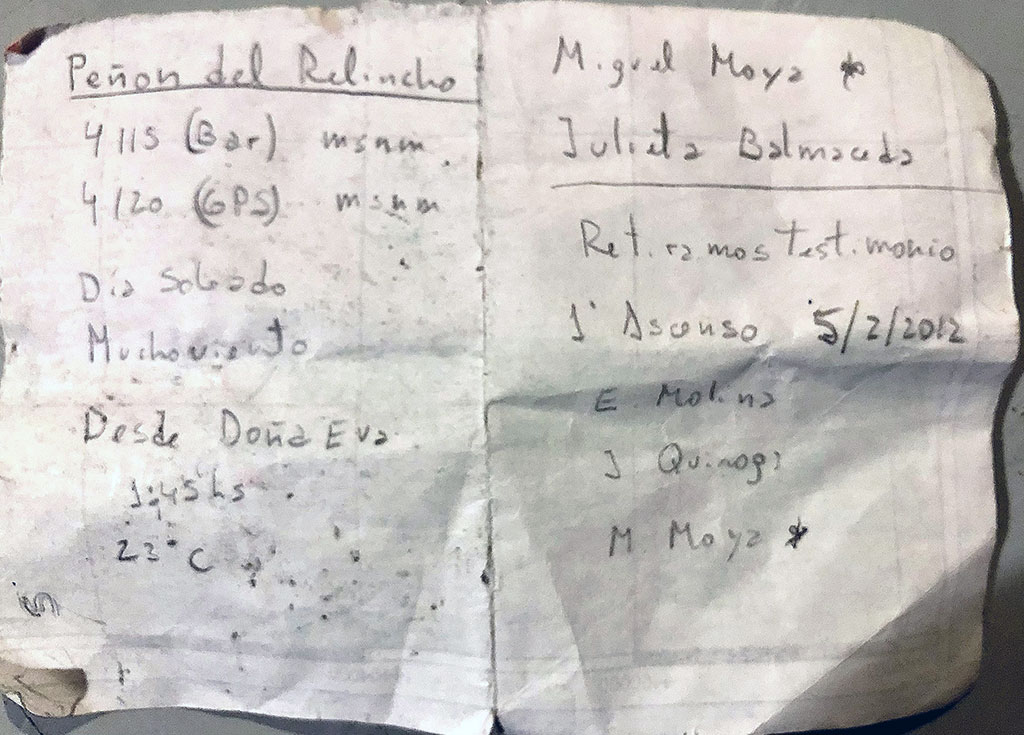 Peñon del Relincho
4115 (Bar) msnm.
4120 (GPS) msnm
Dia Soleado
Mucho viento
Desde Doña Eva
1:45 hs.
23°C
Miguel Moya *
Julieta Balmaceda
Retiramos testimonio
1° Ascenso 5/2/2012
E. Molina
J Quiroga
M. Moya *